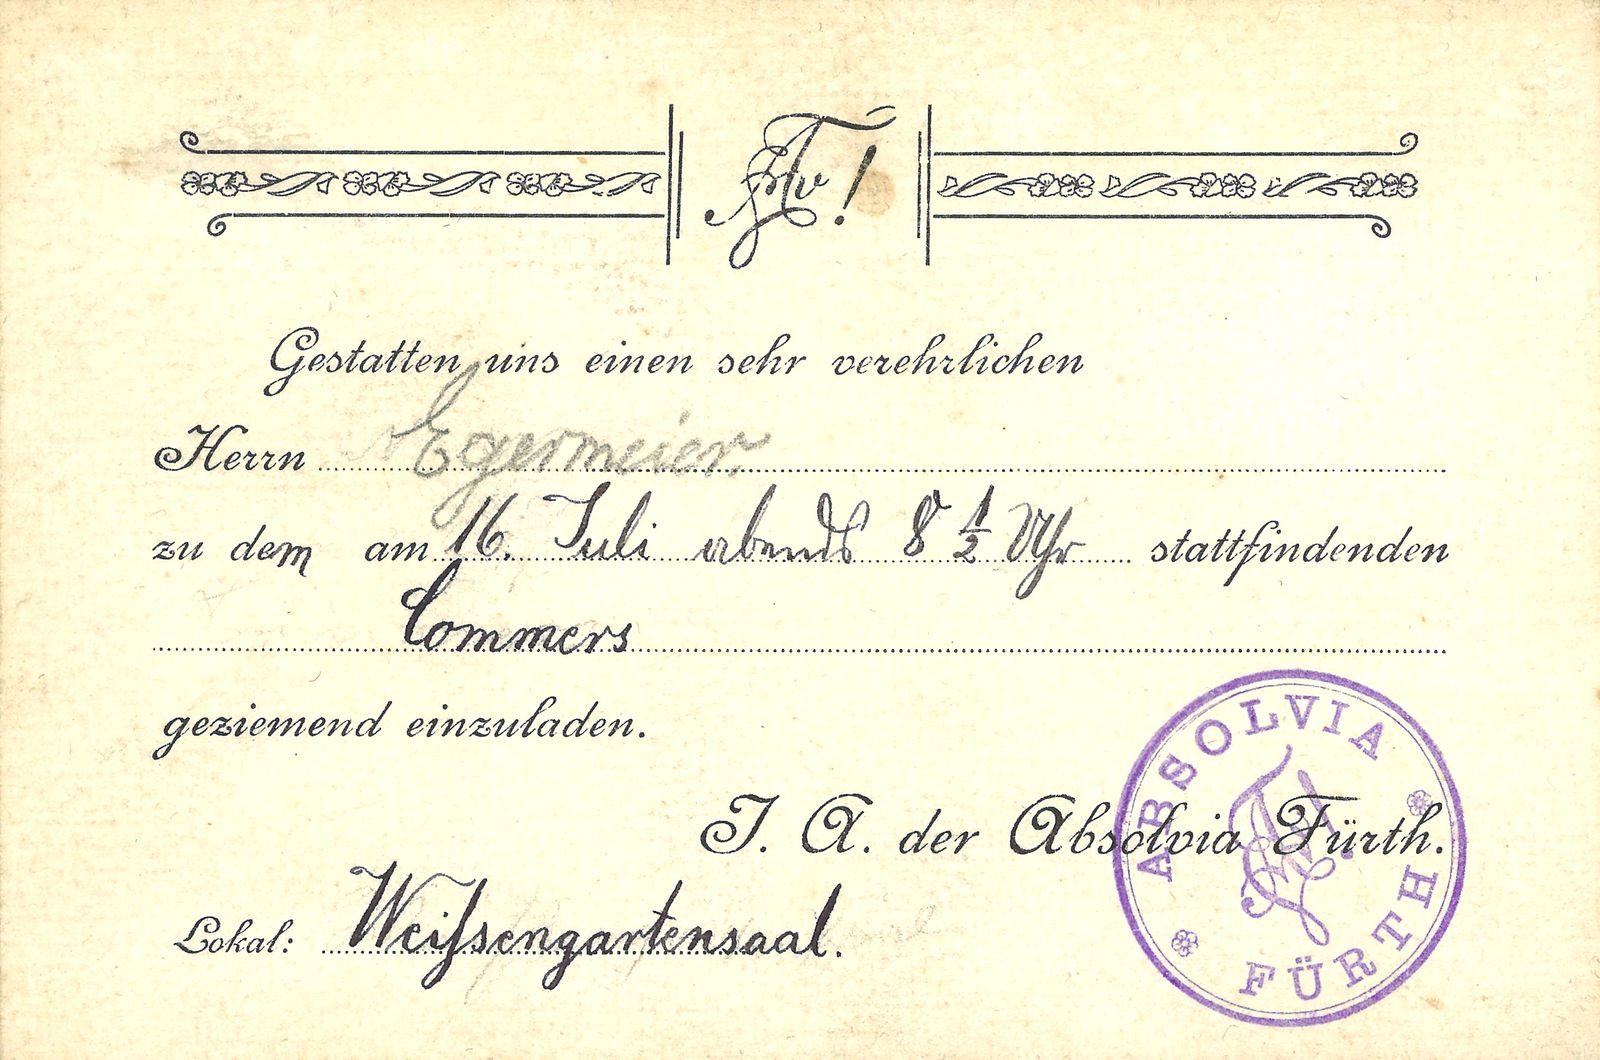 Gestatten uns einen sehr verehrlichen
Herrn Egermeier.
zu dem am 16. Juli abends 8 1/2 Uhr stattfindenden
Commers
geziemend einzuladen.
I. A. der Absolvia Fürth.
Lokal: Weißengartensaal.
ABSOLVIA FÜRTH